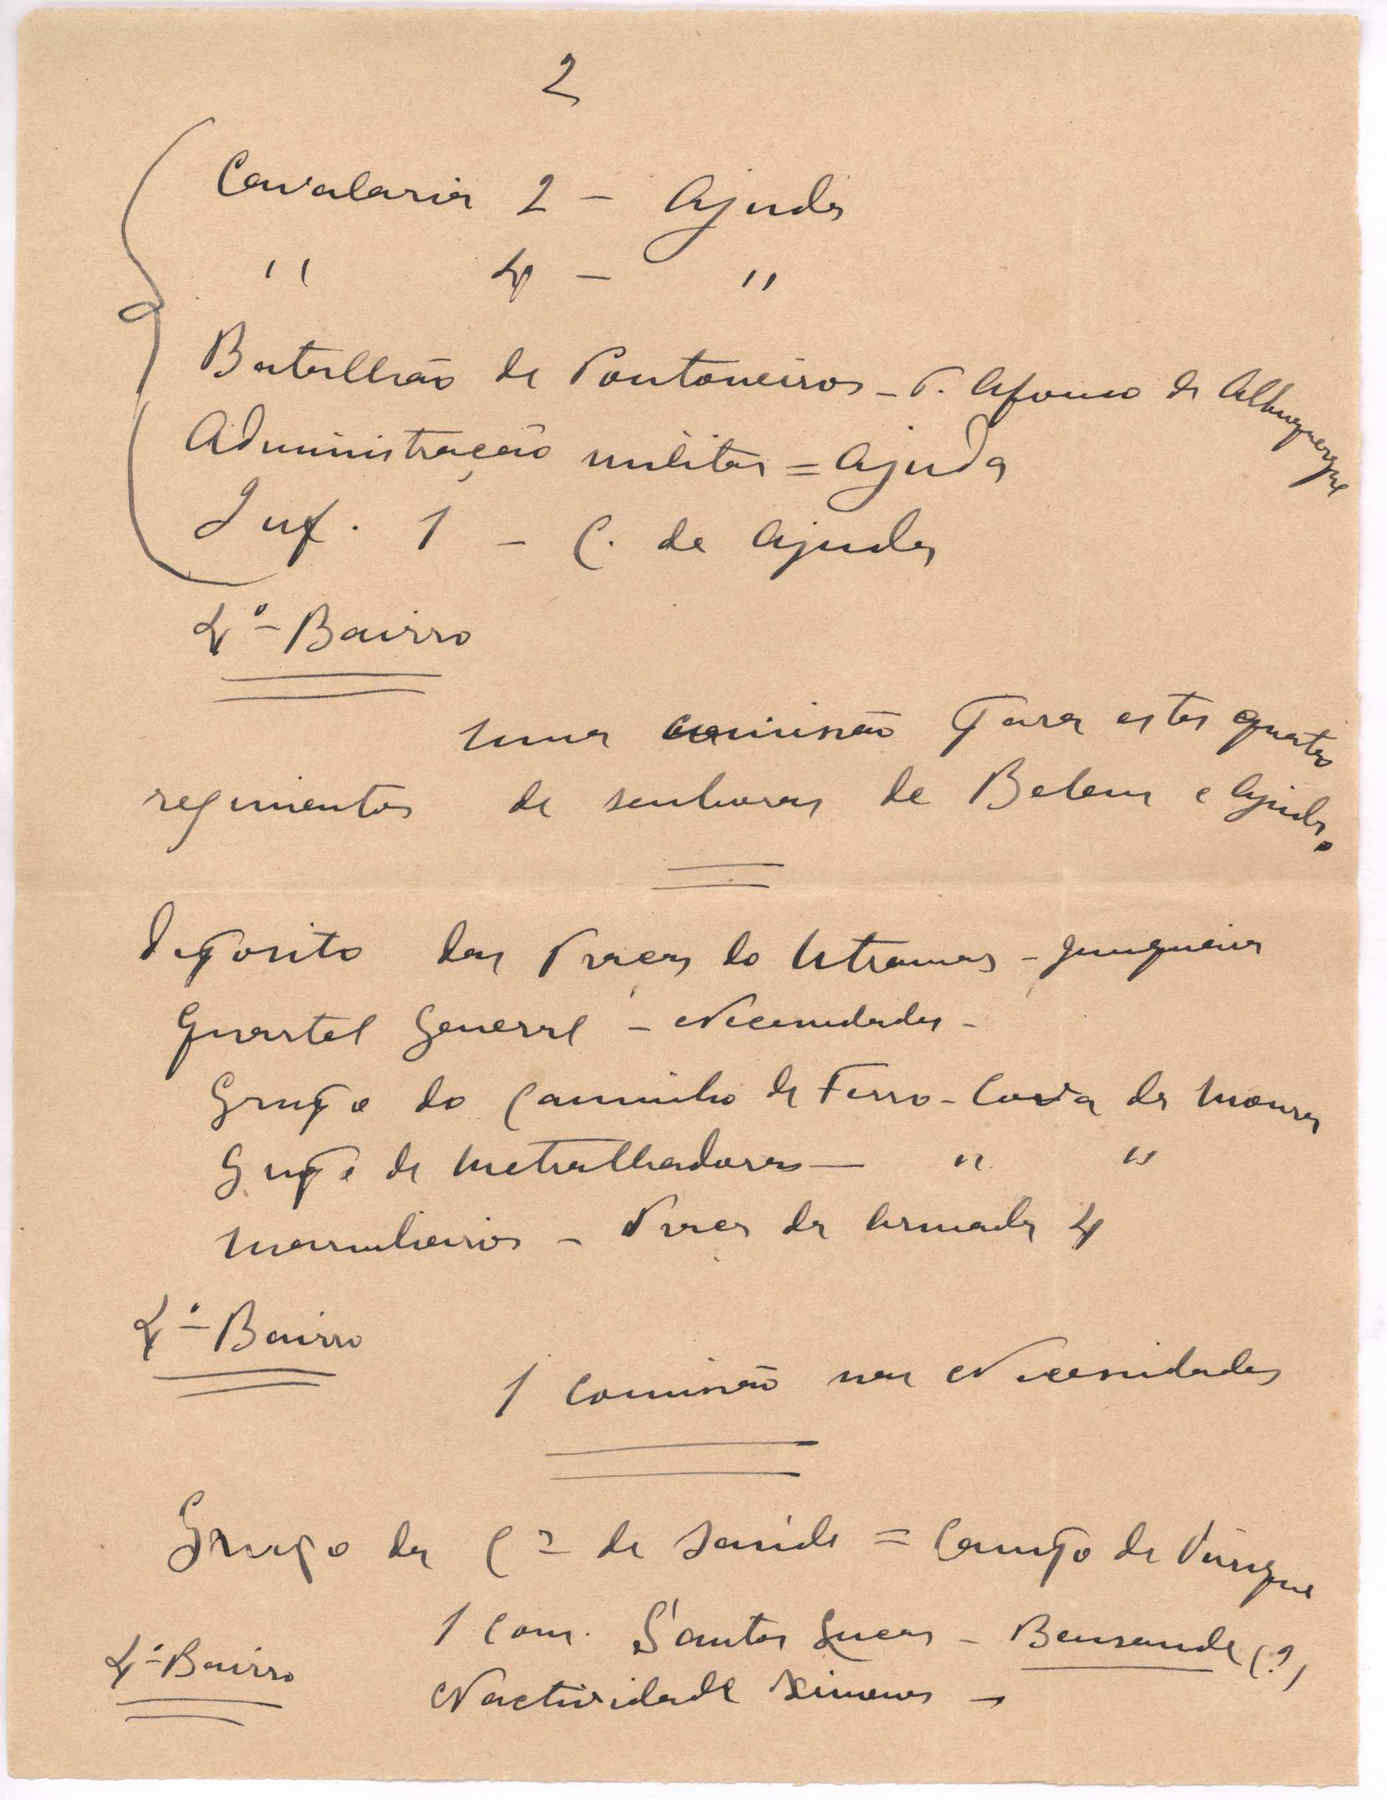 2
Cavalaria 2 - Ajuda
" 4 - "
Batalhão de Pontoneiros - P. Afonso de Albuquerque
Administração militar = Ajuda
Inf. 1 - C. da Ajuda
4º - Bairro
uma comissão para estes quatro
regimentos de senhoras de Belem e Ajuda.
Deposito das Praças do Utramar - Junqueira
Quartel General - Necessidades -
Grupo do Caminho de Ferro - Cova da Moura
Grupo de Metralhadoras - " "
Marinheiros - Praça da Armada 4
4º - Bairro
1 comissão nas Necessidades
Grupo da Cª de Saúde = Campo de Ourique
1 Com. Santos Lucas - Bensaude (?)
4º - Bairro
Nactividade Ximenes -